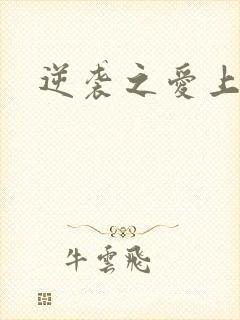 逆袭之愛上
牛雲飛